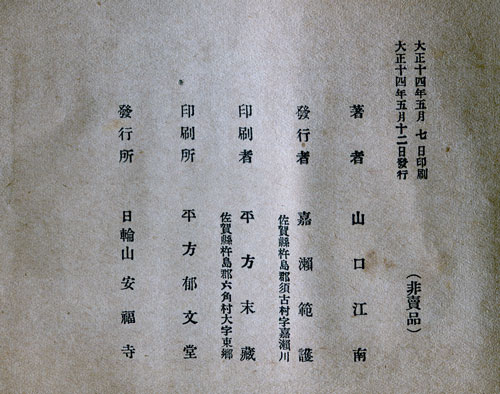 大正十四年五月 七日印刷
大正十四年五月十二日發行
(非賣品)
著者 山口江南
佐賀縣杵島郡須古村字嘉瀨川
發行者 嘉瀨範護
佐賀縣杵島郡六角村大字東鄉
印刷者 平方末藏
印刷所 平方郁文堂
發行所 日輪山安福寺